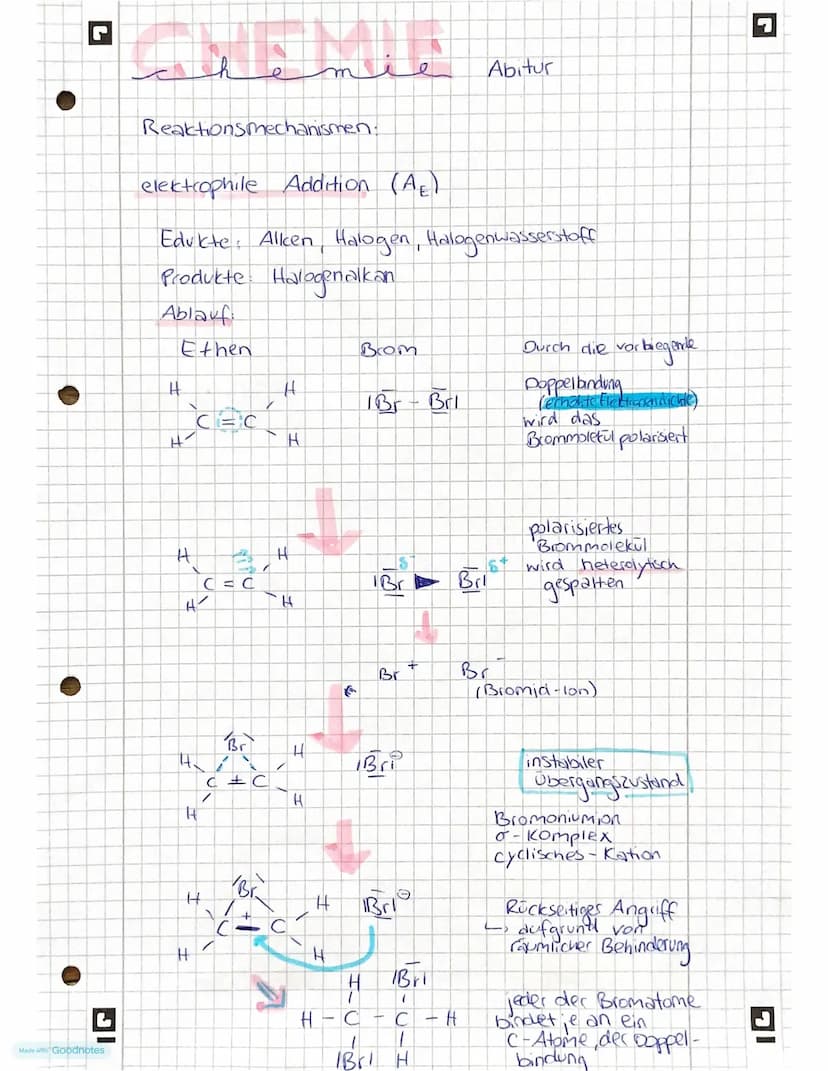 CHEMIE
chemie Abitur
Reaktionsmechanismen:
elektrophile Addition (AE)
Edukte: Alken, Halogen, Halogenwasserstoff
Produkte: Halogenalkan
Ablauf:
Ethen Brom Durch die vorliegende
Doppelbindung
(erhöhte Elektronendichte)
wird das
Brommolekül polarisiert
H H
C = C
H H
|Br - Br|
polarisiertes
Brommolekül
wird heterolytisch
gespalten
H H
C = C
H H
δ- δ+
|Br Br|
Br + Br -
(Bromid-Ion)
Br
H H
C ± C
H H
|Br| ⊖
instabiler
Übergangszustand
Bromoniumion
σ-Komplex
cyclisches-Kation
Br
H H
C + C
H H
|Br| ⊖
Rückseitiger Angriff
↳ aufgrund von
räumlicher Behinderung
H |Br|
H - C - C - H
|Br| H
jeder der Bromatome
bindet je an ein
C-Atome, der Doppel-
bindung
Made with Goodnotes